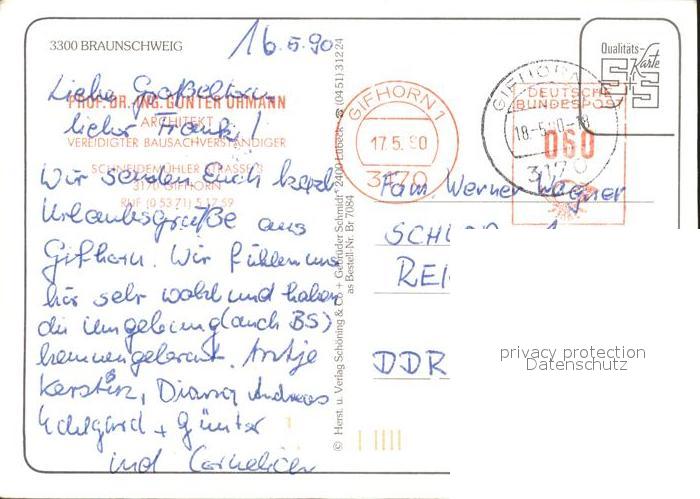 3300 BRAUNSCHWEIG
16.5.90
Liebe Großeltern
lieber Frank!
Wir senden Euch herzl.
Urlaubsgrüße aus
Gifhorn. Wir fühlen uns
hier sehr wohl und haben
die Umgebung (auch BS)
kennengelernt. Antje
Kerstin, Diana Andreas
Edelgard + Günter
und Cornelia
PROF. DR. ING. GÜNTER ORMANN
ARCHITEKT
VEREIDIGTER BAUSACHVERSTÄNDIGER
SCHNEIDEMÜHLER STRASSE
3170 GIFHORN
RUF (0 53 71) 5 17 59
© Herst. u. Verlag Schöning & Co + Gebrüder Schmidt · 2400 Lübeck · ☎ (04 51) 3 12 24
as Bestell-Nr. Br 7084
GIFHORN 1
17.5.90
3170
GIFHORN
18.-5.90-18
3170
DEUTSCHE
BUNDESPOST
060
Qualitäts-
Karte
Fam. Werner Wagner
DDR
privacy protection
Datenschutz